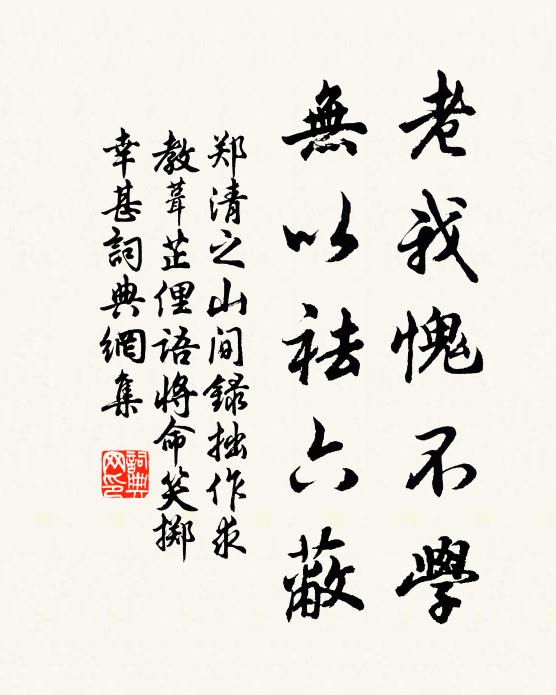 老我愧不學
無以祛六蔽
郑清之山间録拙作求
教葺芷俚語将命笑擲
幸甚詞典網集
詞典网印